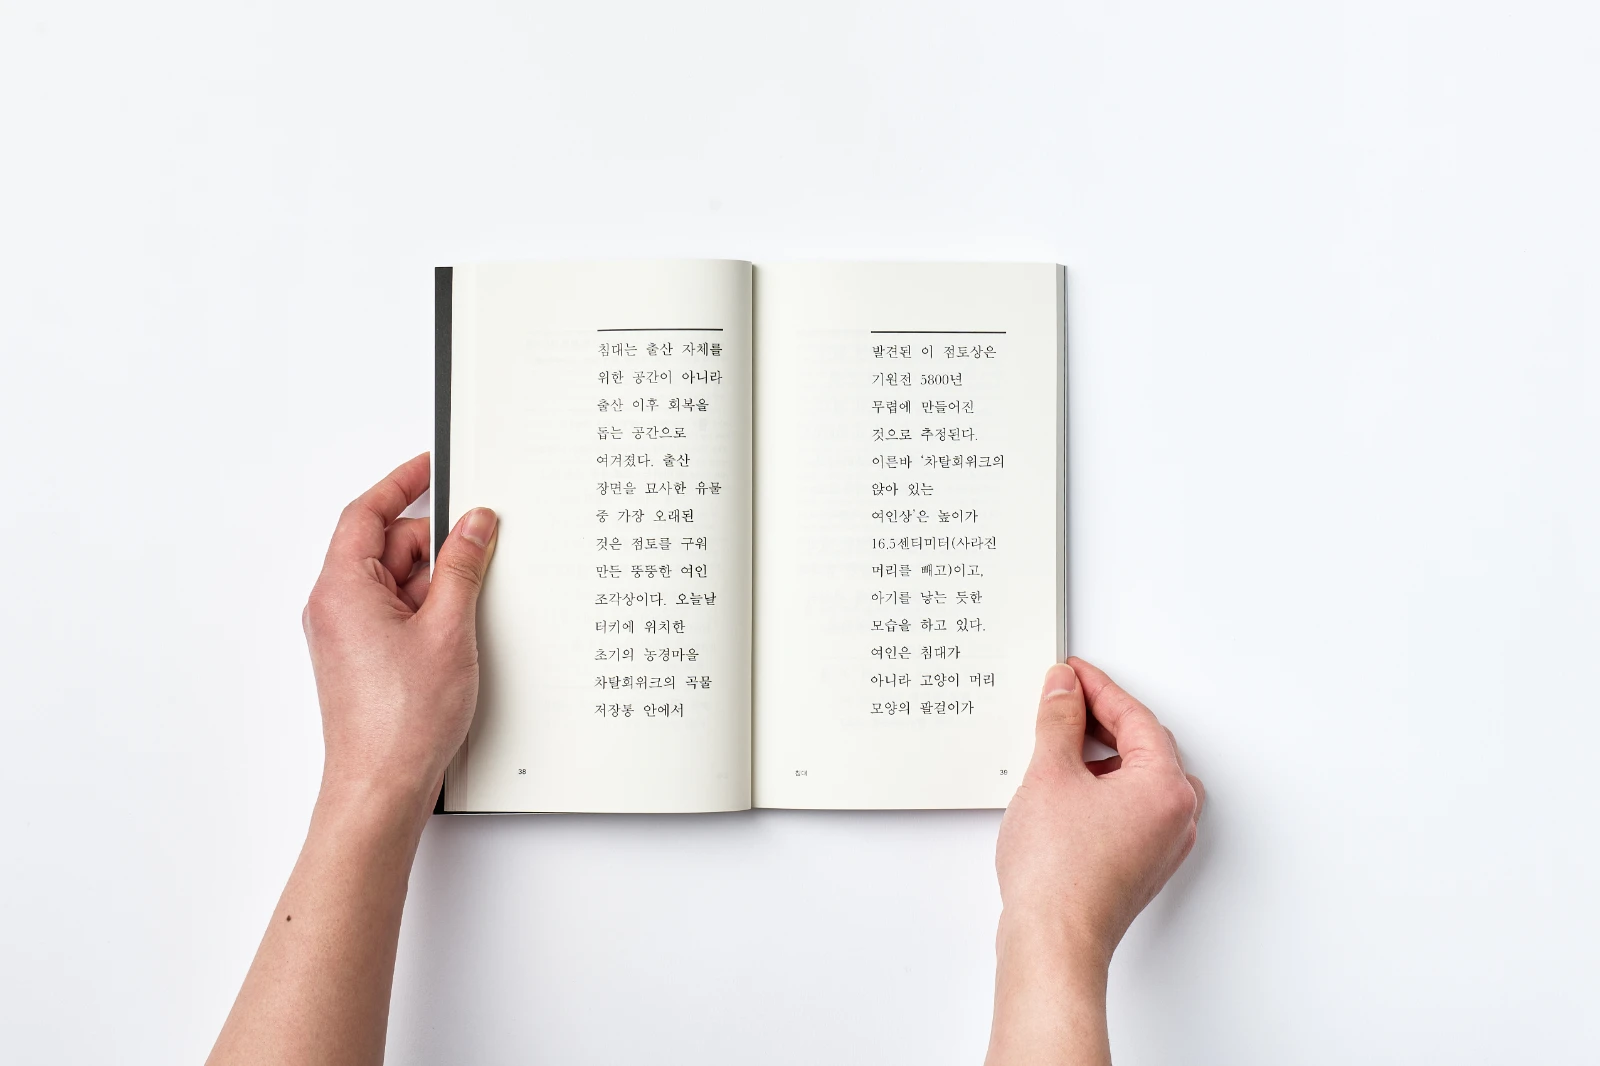 침대는 출산 자체를
위한 공간이 아니라
출산 이후 회복을
돕는 공간으로
여겨졌다. 출산
장면을 묘사한 유물
중 가장 오래된
것은 점토를 구워
만든 뚱뚱한 여인
조각상이다. 오늘날
터키에 위치한
초기의 농경마을
차탈회위크의 곡물
저장통 안에서
38
발견된 이 점토상은
기원전 5800년
무렵에 만들어진
것으로 추정된다.
이른바 ‘차탈회위크의
앉아 있는
여인상’은 높이가
16.5센티미터(사라진
머리를 빼고)이고,
아기를 낳는 듯한
모습을 하고 있다.
여인은 침대가
아니라 고양이 머리
모양의 팔걸이가
침대
39